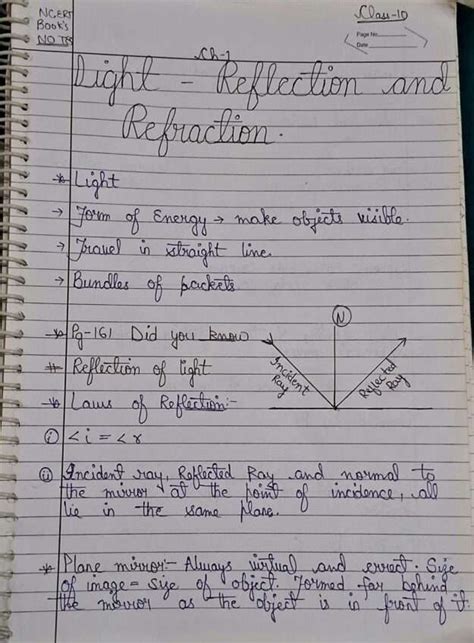 NCERT
Book's
Class-10
Page No.
Date
Ch-1
Light - Reflection and
Refraction.
* Light
→ Form of Energy → make objects visible.
→ Travel in straight line
→ Bundles of packets
* Pg-161 Did you know
* Reflection of light
* Laws of Reflection:-
N
Incident Ray
Reflected Ray
(i) <i = <r
(ii) Incident ray, Reflected Ray and normal to
the mirror at the point of incidence, all
lie in the same plane.
* Plane mirror:- Always virtual and errect. Size
of image = size of object. Formed far behind
the mirror as the object is in front of it.